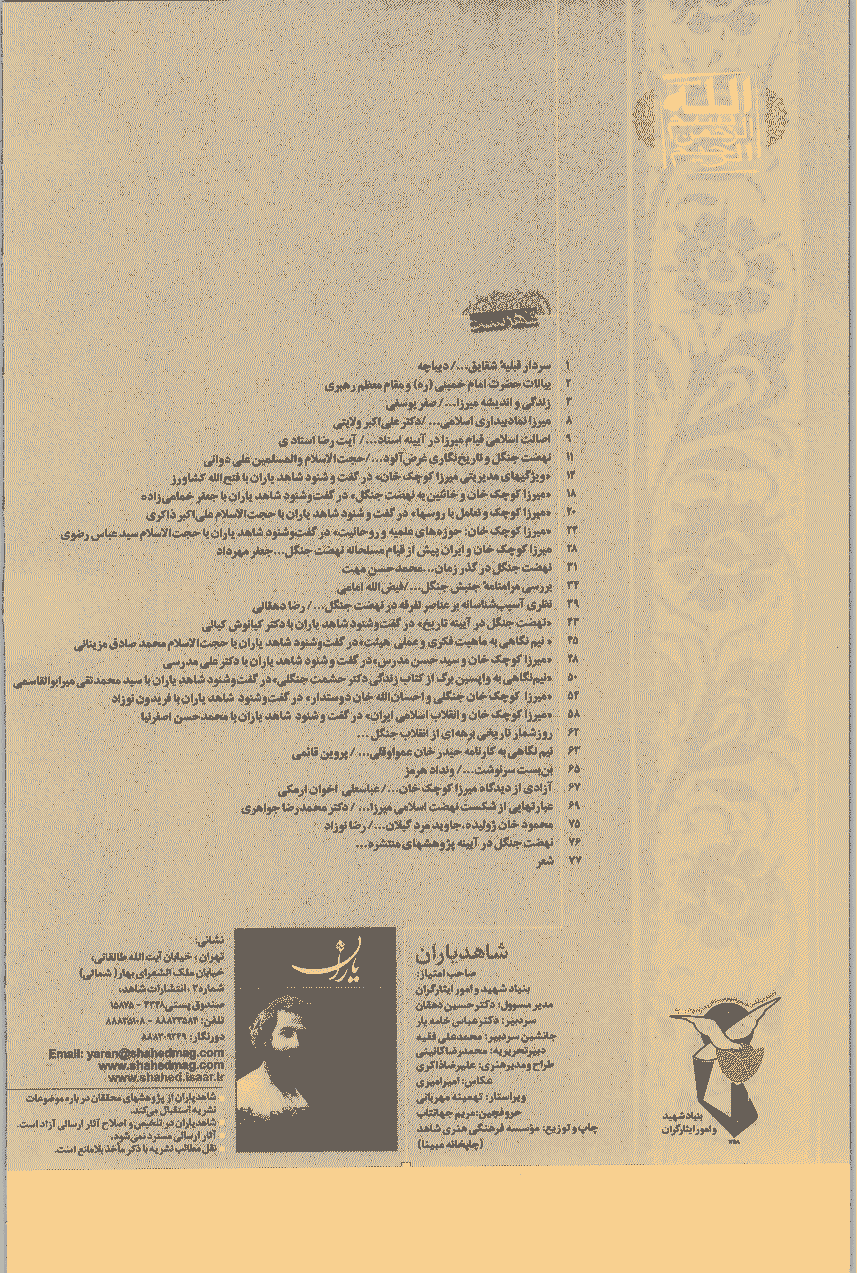 فهرست
۱ سردار قبیلهٔ شقایق.../ دیباچه
۲ بیانات حضرت امام خمینی (ره) و مقام معظم رهبری
۳ زندگی و اندیشه میرزا.../ صفر یوسفی
۸ میرزا نماد بیداری اسلامی... /دکتر علی‌اکبر ولایتی
۹ اصالت اسلامی قیام میرزا در آیینه اسناد.../ آیت رضا استادی
۱۱ نهضت جنگل و تاریخ‌نگاری غرض‌آلود.../حجت‌الاسلام والمسلمین علی دوانی
۱۴ «ویژگیهای مدیریتی میرزا کوچک خان» در گفت و شنود شاهد یاران با فتح‌الله کشاورز
۱۸ «میرزا کوچک خان و خائنین به نهضت جنگل» در گفت‌وشنود شاهد یاران با جعفر خمامی‌زاده
۲۰ «میرزا کوچک و تعامل با روسها» در گفت و شنود شاهد یاران با حجت‌الاسلام علی‌اکبر ذاکری
۲۴ «میرزا کوچک خان، حوزه‌های علمیه و روحانیت» در گفت‌وشنود شاهد یاران با حجت‌الاسلام سید عباس رضوی
۲۸ میرزا کوچک خان و ایران پیش از قیام مسلحانه نهضت جنگل...جعفر مهرداد
۳۱ نهضت جنگل در گذر زمان...محمدحسن مهت
۳۴ بررسی مرامنامهٔ جنبش جنگل.../فیض‌الله امامی
۳۹ نظری آسیب‌شناسانه بر عناصر تفرقه در نهضت جنگل.../ رضا دهقانی
۴۳ «نهضت جنگل در آیینه تاریخ» در گفت‌وشنود شاهد یاران با دکتر کیانوش کیانی
۴۵ « نیم نگاهی به ماهیت فکری و عملی هیئت» در گفت‌وشنود شاهد یاران با حجت‌الاسلام محمد صادق مزینانی
۴۸ «میرزا کوچک خان و سید حسن مدرس» در گفت و شنود شاهد یاران با دکتر علی مدرسی
۵۰ «نیم‌نگاهی به واپسین برگ از کتاب زندگی دکتر حشمت جنگلی» در گفت‌وشنود شاهد یاران با سید محمدتقی میرابوالقاسمی
۵۴ «میرزا کوچک خان جنگلی و احسان‌الله خان دوستدار» در گفت‌وشنود شاهد یاران با فریدون نوزاد
۵۸ «میرزا کوچک خان و انقلاب اسلامی ایران» در گفت و شنود شاهد یاران با محمدحسن اصغرنیا
۶۲ روزشمار تاریخی برهه‌ای از انقلاب جنگل...
۶۳ نیم نگاهی به کارنامه حیدر خان عمواوقلی... / پروین قائمی
۶۵ بن‌بست سرنوشت.../ ونداد هرمز
۶۷ آزادی از دیدگاه میرزا کوچک خان.../ عباسعلی اخوان ارمکی
۶۹ عبارتهایی از شکست نهضت اسلامی میرزا... / دکتر محمدرضا جواهری
۷۵ محمود خان ژولیده، جاوید مرد گیلان.../ رضا نوزاد
۷۶ نهضت جنگل در آیینه پژوهشهای منتشره...
۷۷ شعر
شاهد یاران
صاحب امتیاز:
بنیاد شهید و امور ایثارگران
مدیر مسوول: دکتر حسین دهقان
سردبیر: دکتر عباس خامه یار
جانشین سردبیر: محمدعلی فقیه
دبیرتحریریه: محمدرضا کائینی
طراح و مدیرهنری: علیرضا ذاکری
عکاس: امیر امیری
ویراستار: تهمینه مهربانی
حروفچین: مریم جهانتاب
چاپ و توزیع: مؤسسه فرهنگی هنری شاهد
(چاپخانه مبینا)
یاران
نشانی:
تهران، خیابان آیت‌الله طالقانی،
خیابان ملک‌الشعرای بهار( شمالی)
شماره۳، انتشارات شاهد،
صندوق پستی ۴۳۴۸ - ۱۵۸۷۵
تلفن: ۸۸۸۲۳۵۸۴ - ۸۸۸۲۵۱۰۸
دورنگار: ۸۸۸۳۰۹۲۴۹
Email: yaran@shahedmag.com
www.shahedmag.com
www.shahed.isaar.ir
شاهدیاران از پژوهشهای محققان درباره موضوعات
نشریه استقبال می‌کند.
شاهدیاران در تلخیص و اصلاح آثار ارسالی آزاد است.
آثار ارسالی مسترد نمی‌شود.
نقل مطالب نشریه با ذکر ماخذ بلامانع است.
بنیاد شهید
و امور ایثارگران